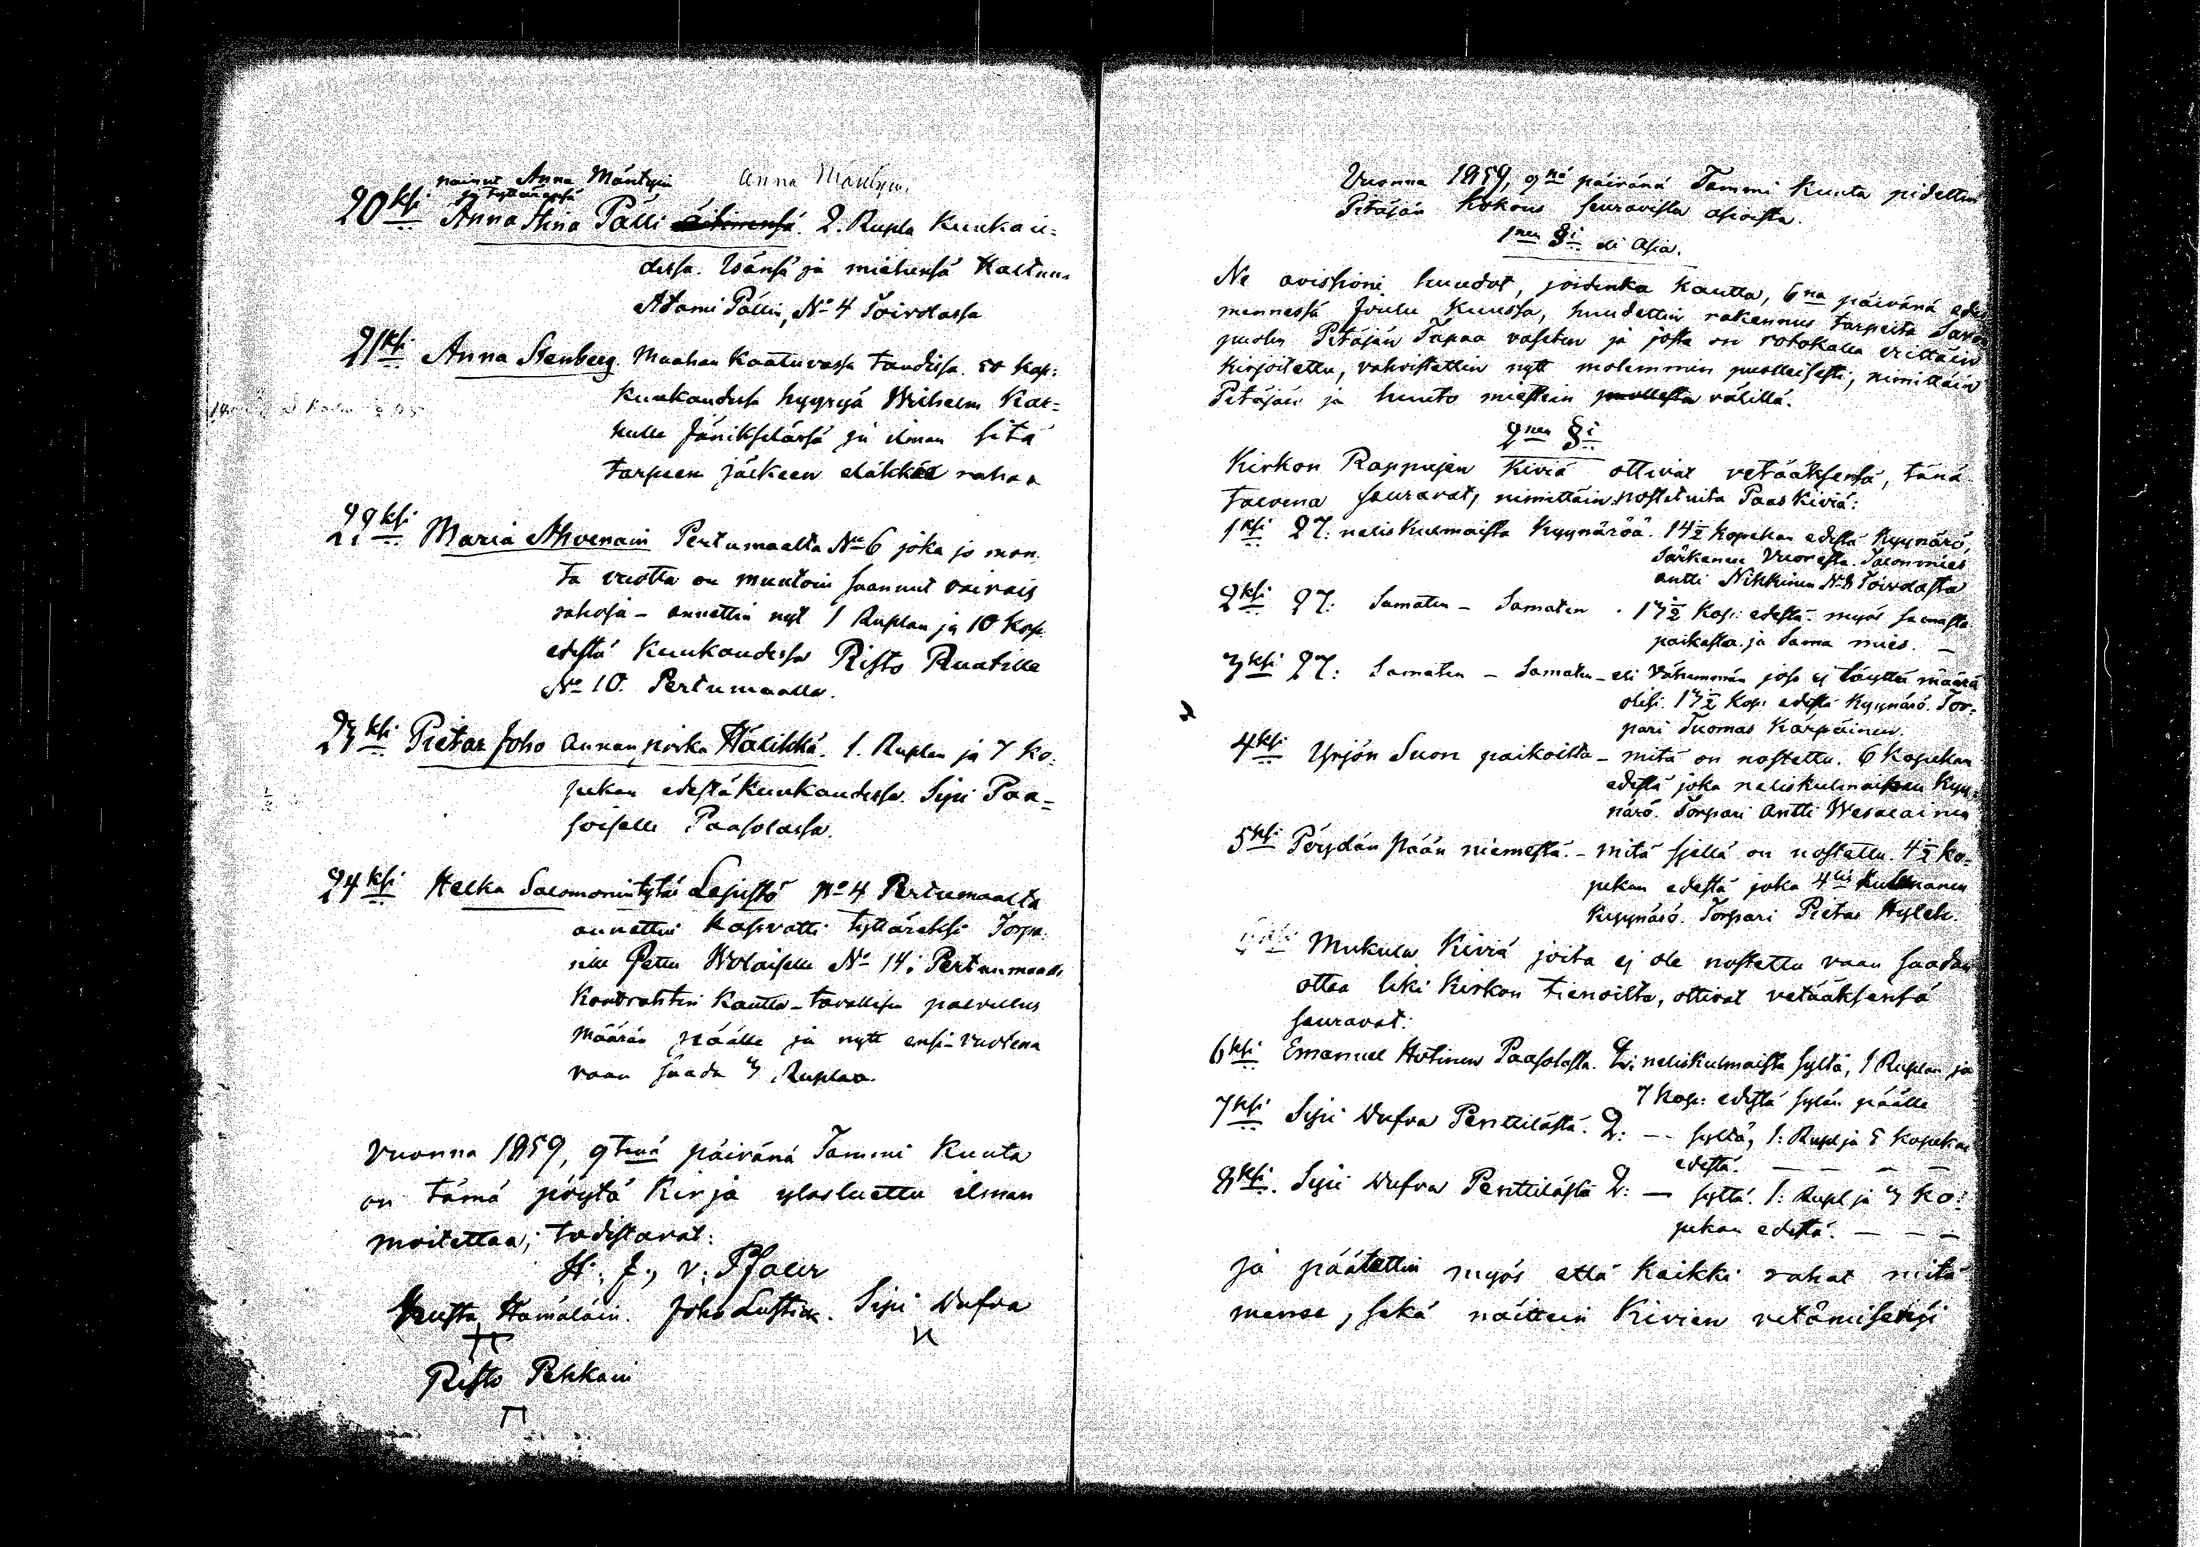 nainut Anna Mäntyin Anna Mäntyin
ja tyttärensä
20ksi Anna Stina Pälli äitinensä. 2. Rupla Kuukau=
dessa. Isänsä ja miehensä Haltuun
Adami Pällin, No 4 Toivolassa
21ksi Anna Stenberg. Maahan Kaatuvassa taudissa. 50 Kop:
Kuukaudessa hyyryä Wilhelm Kar=
hulle Jänikselässä ja ilman sitä
tarpeen jälkeen eläkkee rahaa
22ksi Maria Ahvenain Pertumaalta No 6 joka jo mon
ta vuotta on muutoin saanut vaivais
rahoja - annettin nyt 1 Ruplan ja 10 Kop
edestä Kuukaudessa Risto Ruatille
No 10. Pertumaalla.
23ksi Pietar Joho Annan poika Hälikkä. 1. Ruplan ja 7 Ko=
pekan edestä Kuukaudessa. Sipi Paa=
soiselle Paasolassa.
24ksi Helka Salomonintytär Lepistö No 4 Pertumaalta
annettin Kasvatti tyttäreksi Torpa
rille Petter Wolaiselle No 14; Pertunmaalla
Kontrahtin Kautta - tavallisen palvellus
määrän päälle ja nytt ensi-vuotena
vaan saada 3 Ruplaa.
Vuonna 1859, 9tenä päivänä Tammi Kuuta
on tämä pöytä Kirja ylösluettu ilman
moitettaa; todistavat:
H. J., v: Pfaler
Kusta Hämäläin. Joho Lustin. Sipi Dufva
Risto Pekkain
Vuonna 1859, 9nä päivänä Tammi Kuuta pidettin
Pitäjän Kokous seuravista asioista.
1nen §i eli Asia.
Ne avistioni huudot, joidenka Kautta, 6na päivänä edes
mennessä Joulu Kuussa, huudettin rakennus tarpeita Savon
puolen Pitäjän Tupaa vasten ja josta on rotokalla erittäin
Kirjoitettu, vahvistettin nytt molemmin puolleisesti, nimittäin
Pitäjän ja huuto miestein puollesta välillä.
2nen §i
Kirkon Rappujen Kiviä ottivat vetääksensä, tänä
talvena seuravat, nimittäin nostetuita Paas Kiviä:
1ksi 27: neliskulmaista Kyynäröä. 14½ Kopekan edestä Kyynärö,
Särkemen Vuoresta. Talonmies
Antti Nikkinen No 3 Toivolasta
2ksi 27: Samaten - Samaten . 13½ Kop: edestä. myös samasta
paikasta. ja Sama mies. -
3ksi 27: Samaten - Samaten - eli Vähemmän jos ej täyttä määrä
olisi. 13½ Kop: edestä Kyynärö. Tor=
pari Tuomas Karpainen.
4ksi Yrjön Suon paikoilta - mitä on nostettu. 6 Kopekan
edestä joka neliskulmaisen Kyy=
närö. Torpari Antti Wesalainen
5ksi Pöydän pään niemestä. - mitä sjellä on nostettu. 4½ Ko=
pekan edestä joka 4lis Kulmanen
Kyynärö. Torpari Pietar Hylek.
Mukula Kiviä joita ej ole nostettu vaan saadan
ottaa liki Kirkon tienoilta, ottivat vetääksensä
seuravat:
6ksi Emanuel Hotinen Paasolasta. 2: neliskulmaista syltä, 1 Ruplan ja
7 Kop: edestä sylän päälle
7ksi Sipi Dufva Penttilästä. 2: - syltä, 1: Rupl ja 5 Kopekan
edestä. - - - -
8ksi. Sipi Dufva Penttilästä 2: - syltä. 1: Rupl ja 3 Ko:
pekan edestä. - - -
ja päätettin myös että Kaikki rahat mitä
menee, sekä näittein Kivien vetämisexsi